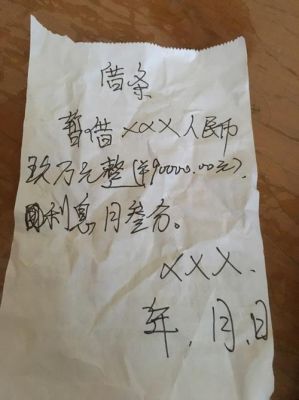 借条
暂借XXX人民币
玖万元整(¥90000.00元),
利息月叁分。
XXX.
年.月.日